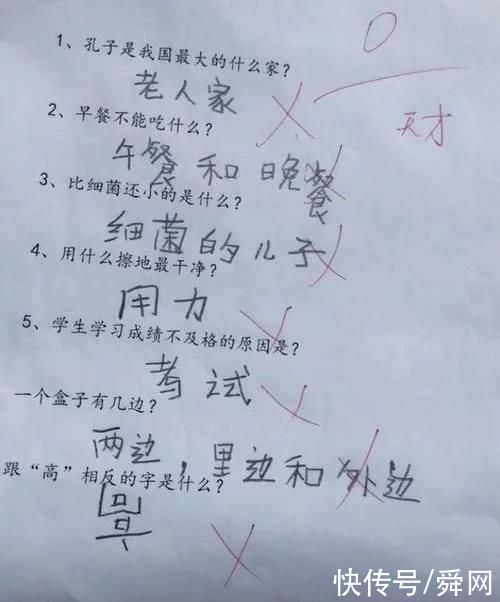 0
1、孔子是我国最大的什么家?
老人家
天才
2、早餐不能吃什么?
午餐和晚餐
3、比细菌还小的是什么?
细菌的儿子
4、用什么擦地最干净?
用力
5、学生学习成绩不及格的原因是?
考试
一个盒子有几边?
两边,里边和外边
跟“高”相反的字是什么?
快传号/舜网